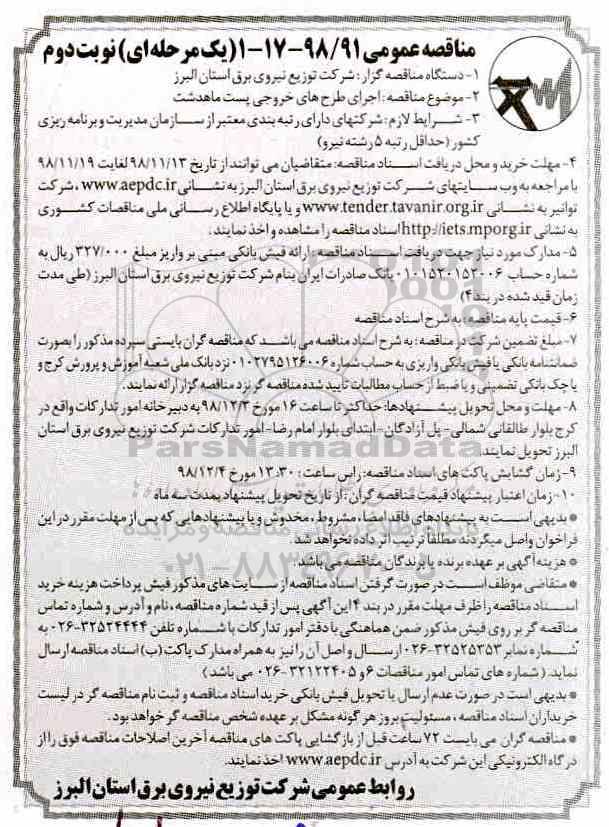 مناقصه عمومی ۹۸/۹۱-۱۷-۱ (یک مرحله ای) نوبت دوم
۱- دستگاه مناقصه گزار: شرکت توزیع نیروی برق استان البرز
۲- موضوع مناقصه: اجرای طرح های خروجی پست ماهدشت
۳- شرایط لازم: شرکتهای دارای رتبه بندی معتبر از سازمان مدیریت و برنامه ریزی
کشور (حداقل رتبه ۵ رشته نیرو)
۴- مهلت خرید و محل دریافت اسناد مناقصه: متقاضیان می توانند از تاریخ ۹۸/۱۱/۱۳ لغایت ۹۸/۱۱/۱۹
با مراجعه به وب سایتهای شرکت توزیع نیروی برق استان البرز به نشانی www.aepdc.ir، شرکت
توانیر به نشانی www.tender.tavanir.org.ir و یا پایگاه اطلاع رسانی ملی مناقصات کشوری
به نشانی http://iets.mporg.ir اسناد مناقصه را مشاهده و اخذ نمایند.
۵- مدارک مورد نیاز جهت دریافت اسناد مناقصه: ارائه فیش بانکی مبنی بر واریز مبلغ ۳۲۷/۰۰۰ ریال به
شماره حساب ۰۱۰۱۵۲۰۱۵۲۰۰۶ بانک صادرات ایران بنام شرکت توزیع نیروی برق استان البرز (طی مدت
زمان قید شده در بند ۴)
۶- قیمت پایه مناقصه: به شرح اسناد مناقصه
۷- مبلغ تضمین شرکت در مناقصه: به شرح اسناد مناقصه می باشد که مناقصه گران بایستی سپرده مذکور را بصورت
ضمانتنامه بانکی یا فیش بانکی واریزی به حساب شماره ۰۱۰۲۷۹۵۱۲۶۰۰۶ نزد بانک ملی شعبه آموزش و پرورش کرج و
یا چک بانکی تضمینی و یا ضبط از حساب مطالبات تایید شده مناقصه گر نزد مناقصه گزار ارائه نمایند.
۸- مهلت و محل تحویل پیشنهادها: حداکثر تا ساعت ۱۶ مورخ ۹۸/۱۲/۳ به دبیرخانه امور تدارکات واقع در
کرج بلوار طالقانی شمالی- پل آزادگان- ابتدای بلوار امام رضا- امور تدارکات شرکت توزیع نیروی برق استان
البرز تحویل نمایند.
۹- زمان گشایش پاکت های اسناد مناقصه: راس ساعت: ۱۳:۳۰ مورخ ۹۸/۱۲/۴
۱۰- زمان اعتبار پیشنهاد قیمت مناقصه گران: از تاریخ تحویل پیشنهاد بمدت سه ماه
* بدیهی است به پیشنهادهای فاقد امضا، مشروط، مخدوش و یا پیشنهادهایی که پس از مهلت مقرر در این
فراخوان واصل میگردند مطلقا ترتیب اثر داده نخواهد شد
* هزینه آگهی بر عهده برنده یا برندگان مناقصه می باشد.
* متقاضی موظف است در صورت گرفتن اسناد مناقصه از سایت های مذکور فیش پرداخت هزینه خرید
اسناد مناقصه را ظرف مهلت مقرر در بند ۴ این آگهی پس از قید شماره مناقصه، نام و آدرس و شماره تماس
مناقصه گر بر روی فیش مذکور ضمن هماهنگی با دفتر امور تدارکات با شماره تلفن ۳۲۵۲۴۴۴۴-۰۲۶ به
شماره نمابر ۳۲۵۲۵۳۵۳-۰۲۶ ارسال و اصل آن را نیز به همراه مدارک پاکت (ب) اسناد مناقصه ارسال
نماید. (شماره های تماس امور مناقصات ۶ و ۳۲۱۲۲۴۰۵-۰۲۶ می باشد)
* بدیهی است در صورت عدم ارسال یا تحویل فیش بانکی خرید اسناد مناقصه و ثبت نام مناقصه گر در لیست
خریداران اسناد مناقصه، مسئولیت بروز هر گونه مشکل بر عهده شخص مناقصه گر خواهد بود.
* مناقصه گران می بایست ۷۲ ساعت قبل از بازگشایی پاکت های مناقصه آخرین اصلاحات مناقصه فوق را از
درگاه الکترونیکی این شرکت به آدرس www.aepdc.ir اخذ نمایند.
روابط عمومی شرکت توزیع نیروی برق استان البرز
ParsNamadData